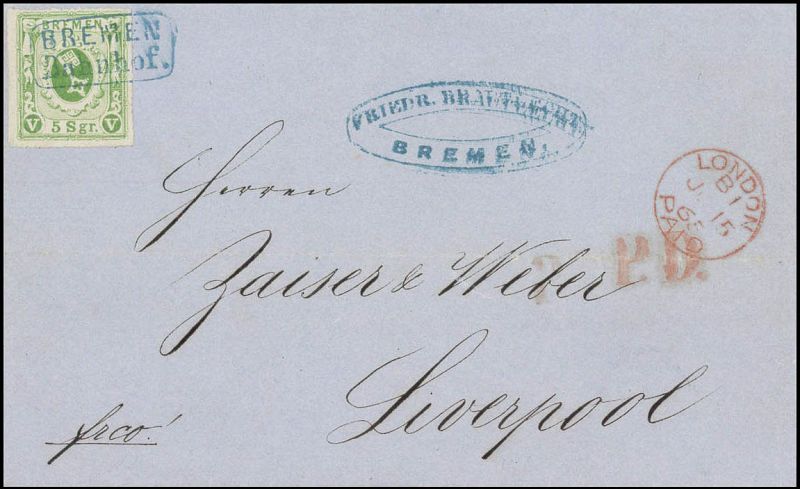 BREMEN
BREMEN
Bahnhof.
V 5 Sgr. V
FRIEDR. BRAUTLECHT
BREMEN.
LONDON
B 1
15
PAID
P.D.
Herren
Zaiser & Weber
Liverpool
frco!